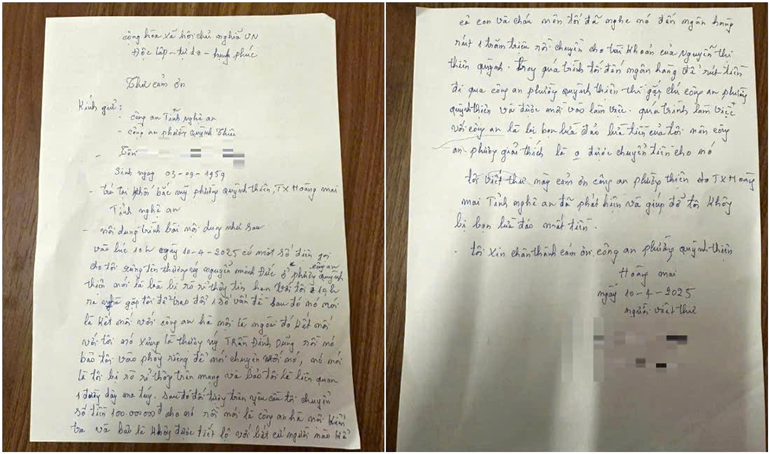 cộng hòa xã hội chủ nghĩa VN
Độc lập - tự do - hạnh phúc
Thư cảm ơn
Kính gửi:
công an Tỉnh nghệ an
- công an phường quỳnh thiên
- Tên
Sinh ngày 03-09-1959
- trú tại khối bắc mỹ phường quỳnh thiên, TX Hoàng mai
Tỉnh nghệ an
- nội dung trình bài nội dung như sau
vào lúc 10h ngày 10-4-2025 có một số điện gọi
cho tôi xưng tên thượng úy nguyễn minh Đức ở công an phường quỳnh
thiên nói là bác bị rò rỉ thông tin hẹn với tôi 19h
ra gặp tôi để trao đổi 1 số vấn đề sau đó nó mới
là kết nối với công an hà nội là người đó kết nối
với tôi nó xưng là thượng úy Trần Đình Dũng rồi nó
bảo tôi vào phòng riêng để nói chuyện với nó, nó nói
là tôi bị rò rỉ thông trên mạng và bảo tôi là liên quan
1 đường dây ma túy. sau đó đối tượng trên yêu cầu tôi chuyển
số tiền 100.000.000đ cho nó rồi nói là công an hà nội kiểm
tra và bảo là không được tiết lộ với bất cứ người nào kể
cả con và cháu nên tôi đã nghe nó đến ngân hàng
rút 1 trăm triệu rồi chuyển cho tài khoản của nguyễn thị
thiên quỳnh. trong quá trình tôi đến ngân hàng để rút tiền
đi qua công an phường quỳnh thiên thì gặp chú công an phường
quỳnh thiên và được mời vào làm việc. quá trình làm việc
với công an là bị bọn lừa đảo lừa tiền của tôi nên công
an phường giải thích là ko được chuyển tiền cho nó
tôi viết thư này cảm ơn công an phường thiên TX Hoàng
mai Tỉnh nghệ an đã phát hiện và giúp đỡ tôi không
bị bọn lừa đảo mất tiền.
- tôi xin chân thành cảm ơn công an phường quỳnh thiên
Hoàng mai
ngày 10-4-2025
người viết thư